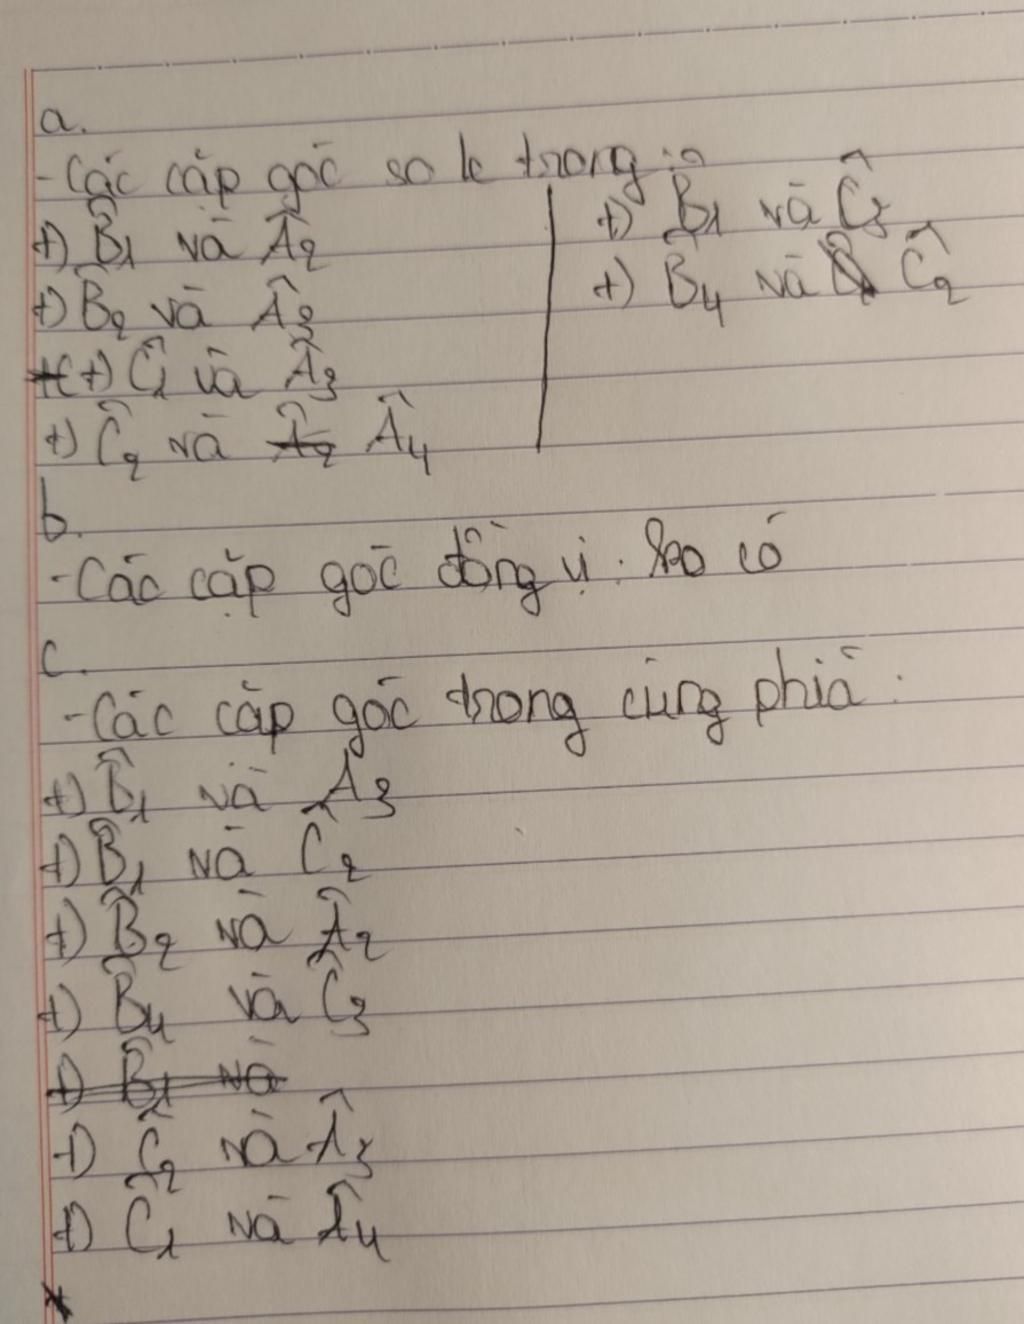 a.
- Các cặp góc so le trong :
+) B̂₁ và Â₂
+) B̂₂ và Â₃
+) Ĉ₁ và Â₃
+) Ĉ₂ và Â₄
+) B̂₁ và Ĉ₃
+) B̂₄ và Ĉ₂
b.
- Các cặp góc đồng vị : có
c.
- Các cặp góc trong cùng phiá :
+) B̂₁ và Â₃
+) B̂₁ và Ĉ₂
+) B̂₂ và Â₂
+) B̂₄ và Ĉ₃
+) Ĉ₂ và Â₃
+) Ĉ₁ và Â₄